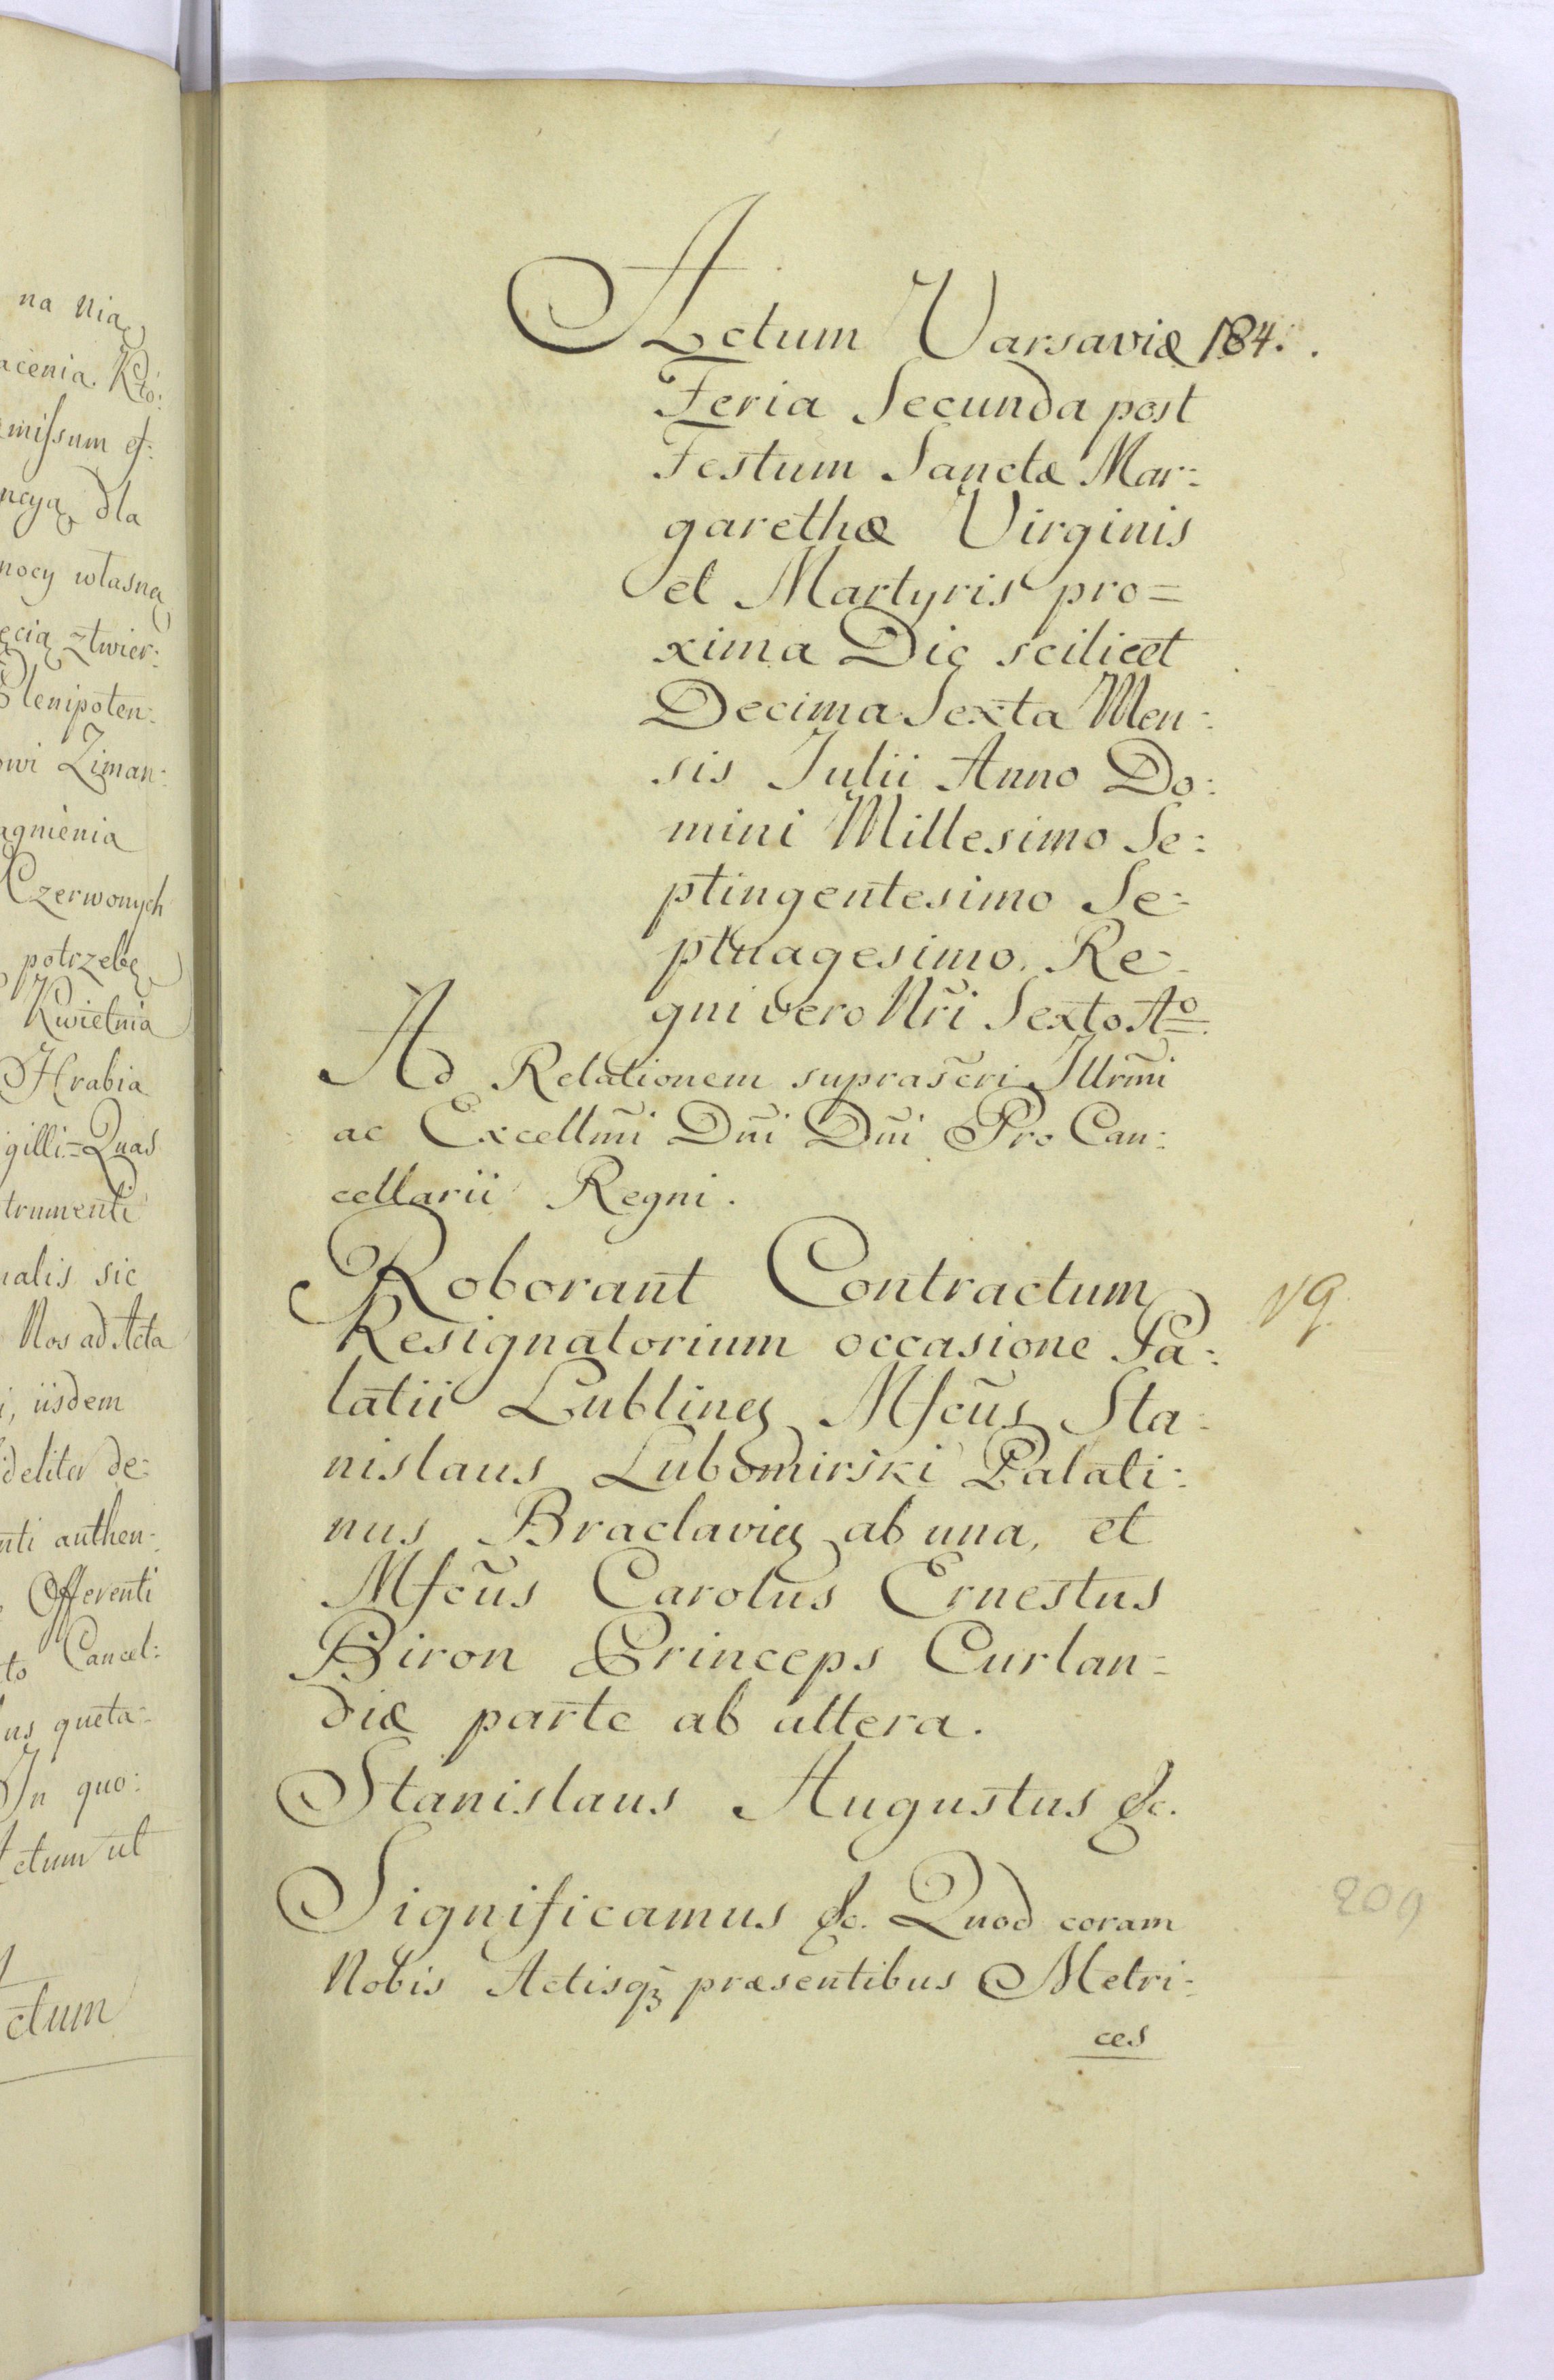 na nią
acenia. Któ:
missum es:
ncyą dla
mocy własną
ęcią ztwier:
Plenipoten:
owi Ziman:
agnienia
Czerwonych
potrzebę
Kwietnia
Hrabia
igilli = Quas
trumenti
nalis sic
Nos ad Acta
i, iisdem
ideliter de:
nti authen:
Offerenti
to Cancel:
us queta:
In quo:
Actum ut
ctum
Actum Varsaviæ 184.
Feria Secunda post
Festum Sanctæ Mar:
garethæ Virginis
et Martyris pro=
xima Die scilicet
Decima Sexta Men:
sis Julii Anno Do:
mini Millesimo Se:
ptingentesimo Se:
ptuagesimo. Re
gni vero Nri Sexto Ao.
Ad Relationem suprascri Illrmi
ac Excellmi Dni Dni Pro Can:
cellarii Regni.
Roborant Contractum
Resignatorium occasione Pa:
latii Lublinen Mfcus Sta:
nislaus Lubomirski Palati:
nus Braclavien ab una, et
Mfcus Carolus Ernestus
Biron Princeps Curlan=
diæ parte ab altera.
Stanislaus Augustus &c.
Significamus &c. Quod coram
Nobis Actisq3 præsentibus Metri:
ces
209